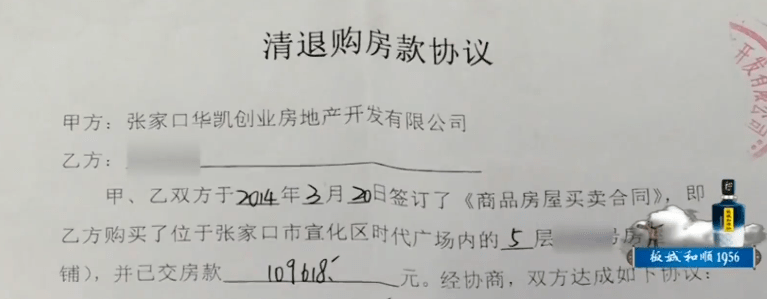 清退购房款协议
开发有限公司
甲方：张家口华凯创业房地产开发有限公司
乙方：
甲、乙双方于2014年3月20日签订了《商品房屋买卖合同》，即
乙方购买了位于张家口市宣化区时代广场内的5层 号房
铺），并已交房款109618元。经协商，双方达成如下协议：
板城和顺1956